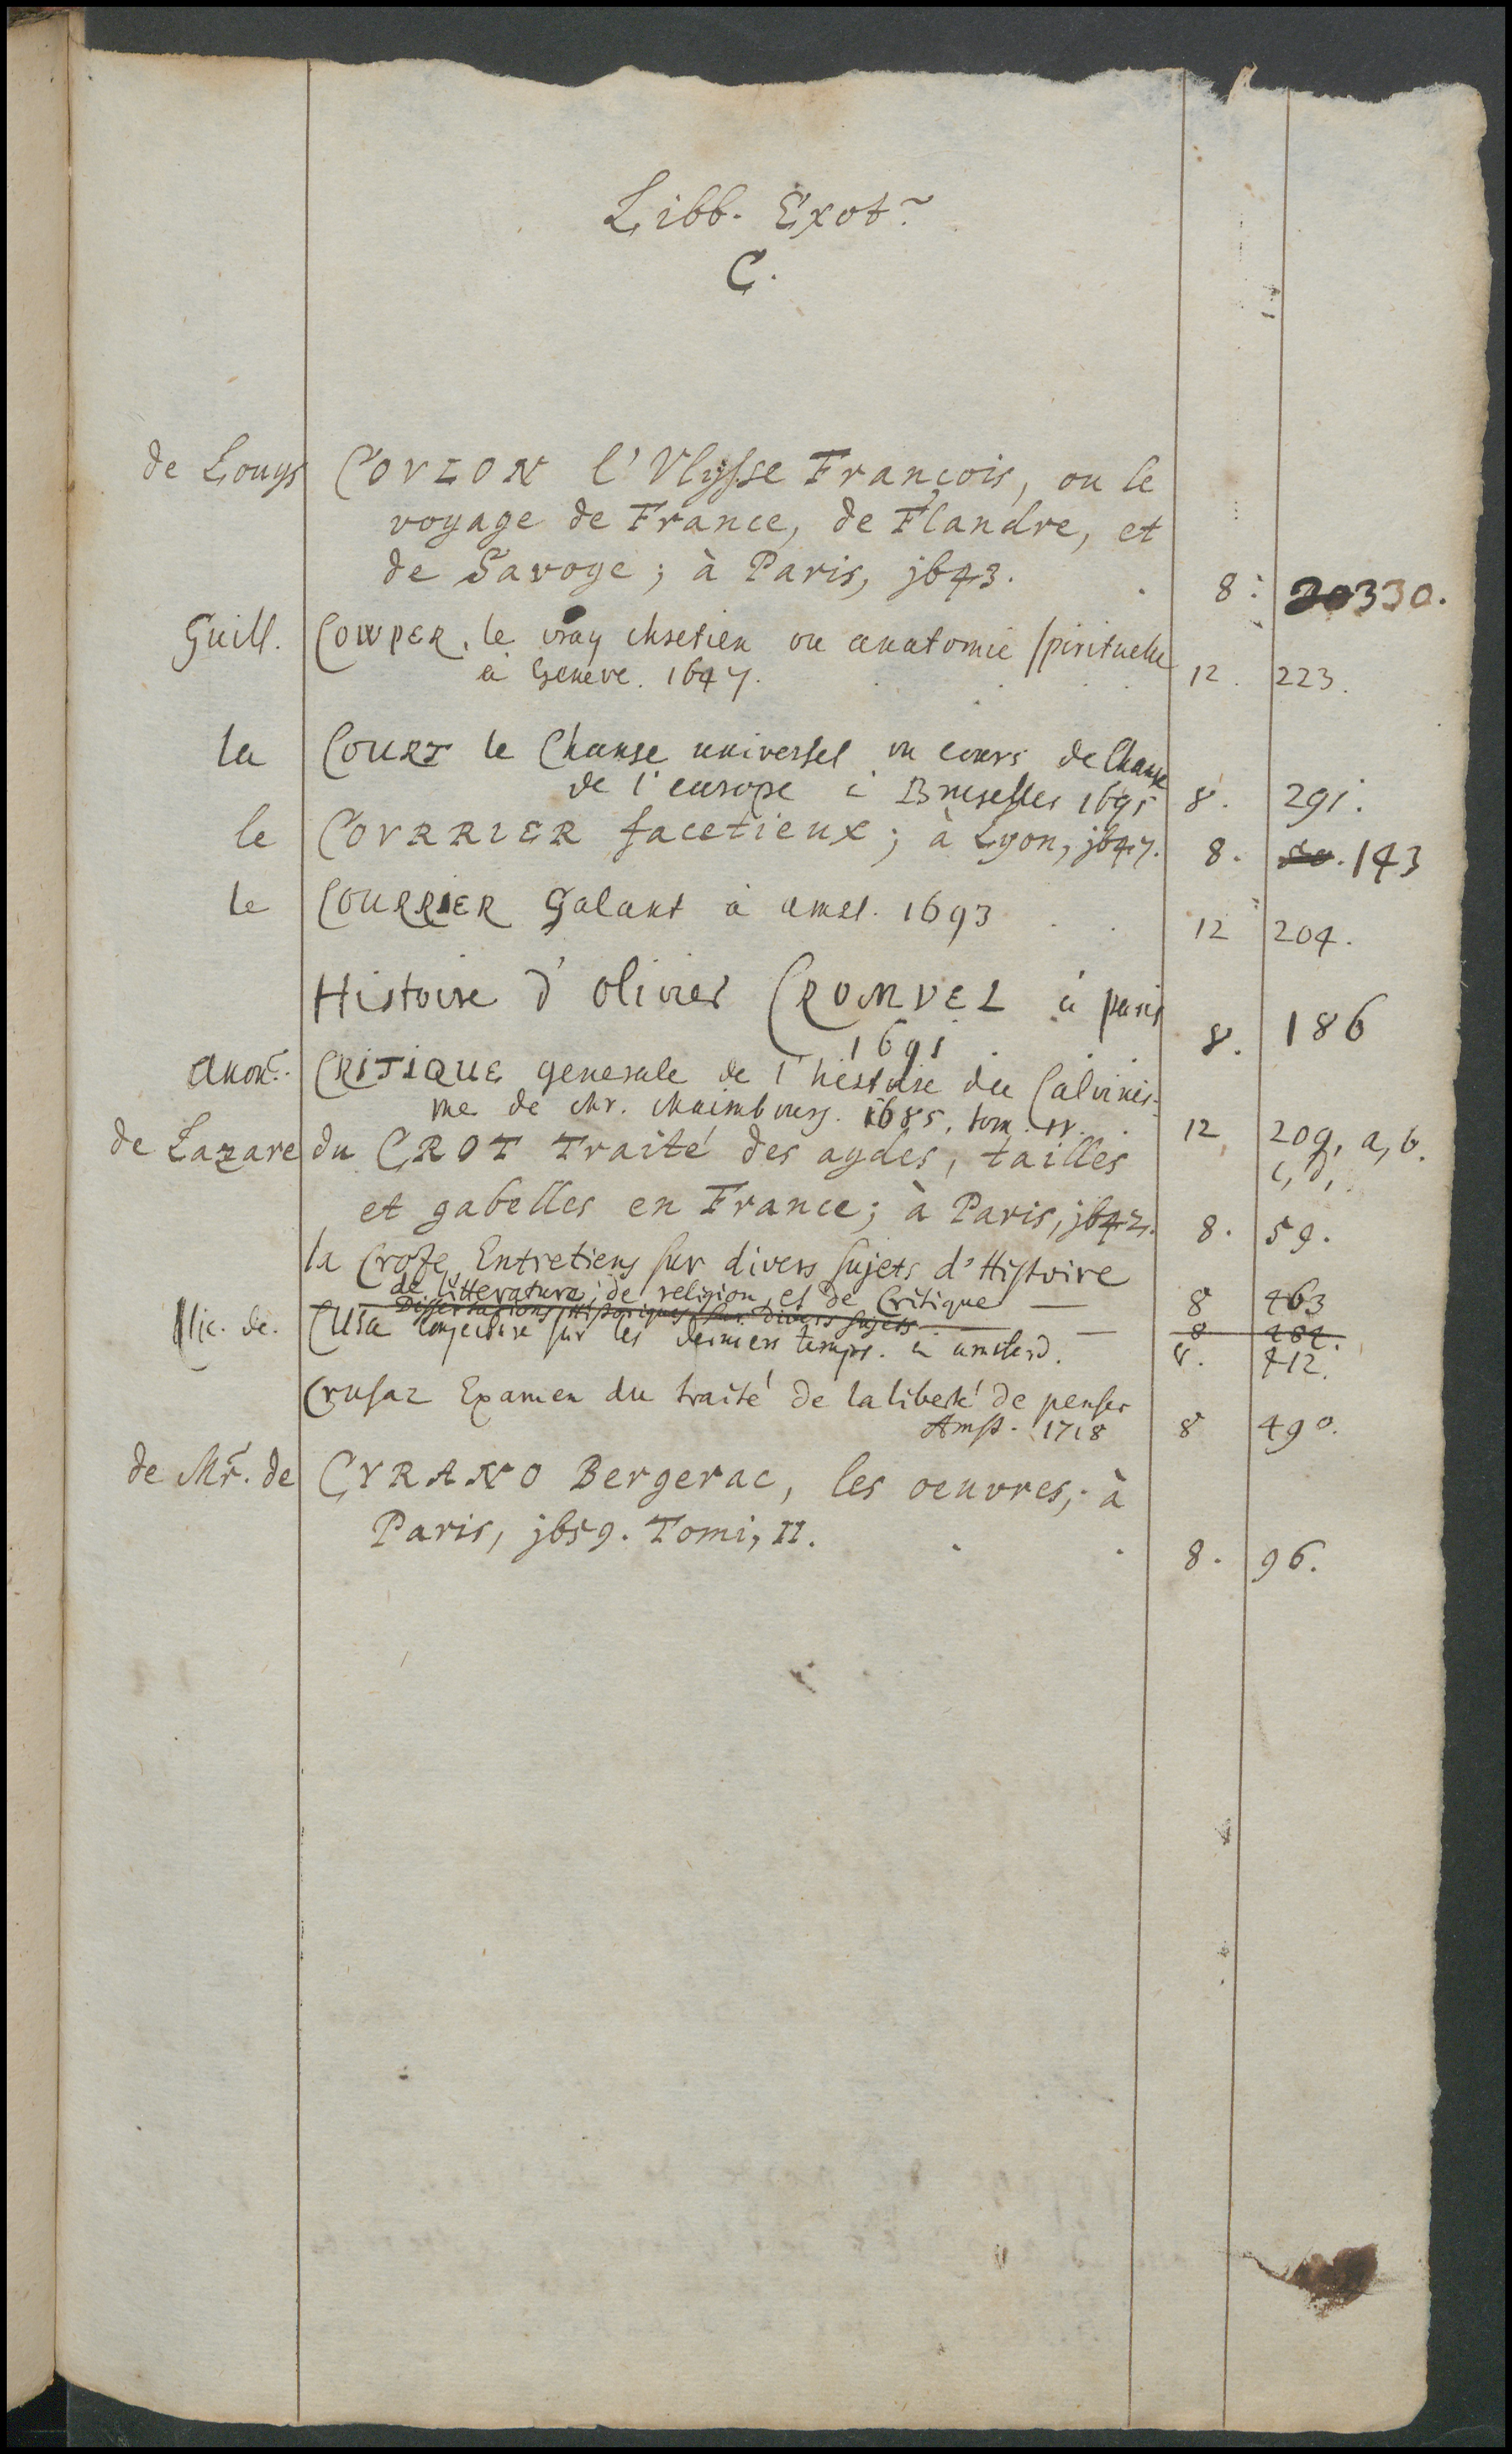 Libb. Exot.
C.
de Louys COVLON l'Vlysse François, ou le
voyage de France, de Flandre, et
de Savoye; à Paris, j643. 8. 330.
Guill. COWPER. le vray chretien ou anatomie spirituelle
à Geneve. 1647. 12. 223.
la COURT le Change universel ou cours de Change
de l'europe à Bruselles 1695 8. 291.
le COVRRIER facetieux; à Lyon, j647. 8. 143
le COURRIER Galant à amst. 1693 12 204.
Histoire d'olivier CROMVEL à paris
1691. 8. 186
anon. CRITIQUE generale de l'histoire du Calvinis-
me de Mr. Maimbourg. 1685. tom. 12 209, a, b.
c, d,
de Lazare du CROT Traité des aydes, tailles
et gabelles en France; à Paris, j642. 8. 59.
la Croze Entretiens sur divers sujets d'Histoire
de litterature, de religion, et de Critique — 8 463
Dissertations Historiques sur divers sujets — 8 484.
Nic. de. Cusa conjecture sur les derniers temps. à amsterd. 8. 412.
Crusaz Examen du traité de la liberté de penser
Amst. 1718 8 490.
de Mr. de CYRANO Bergerac, les oeuvres; à
Paris, j659. Tomi, II. 8. 96.